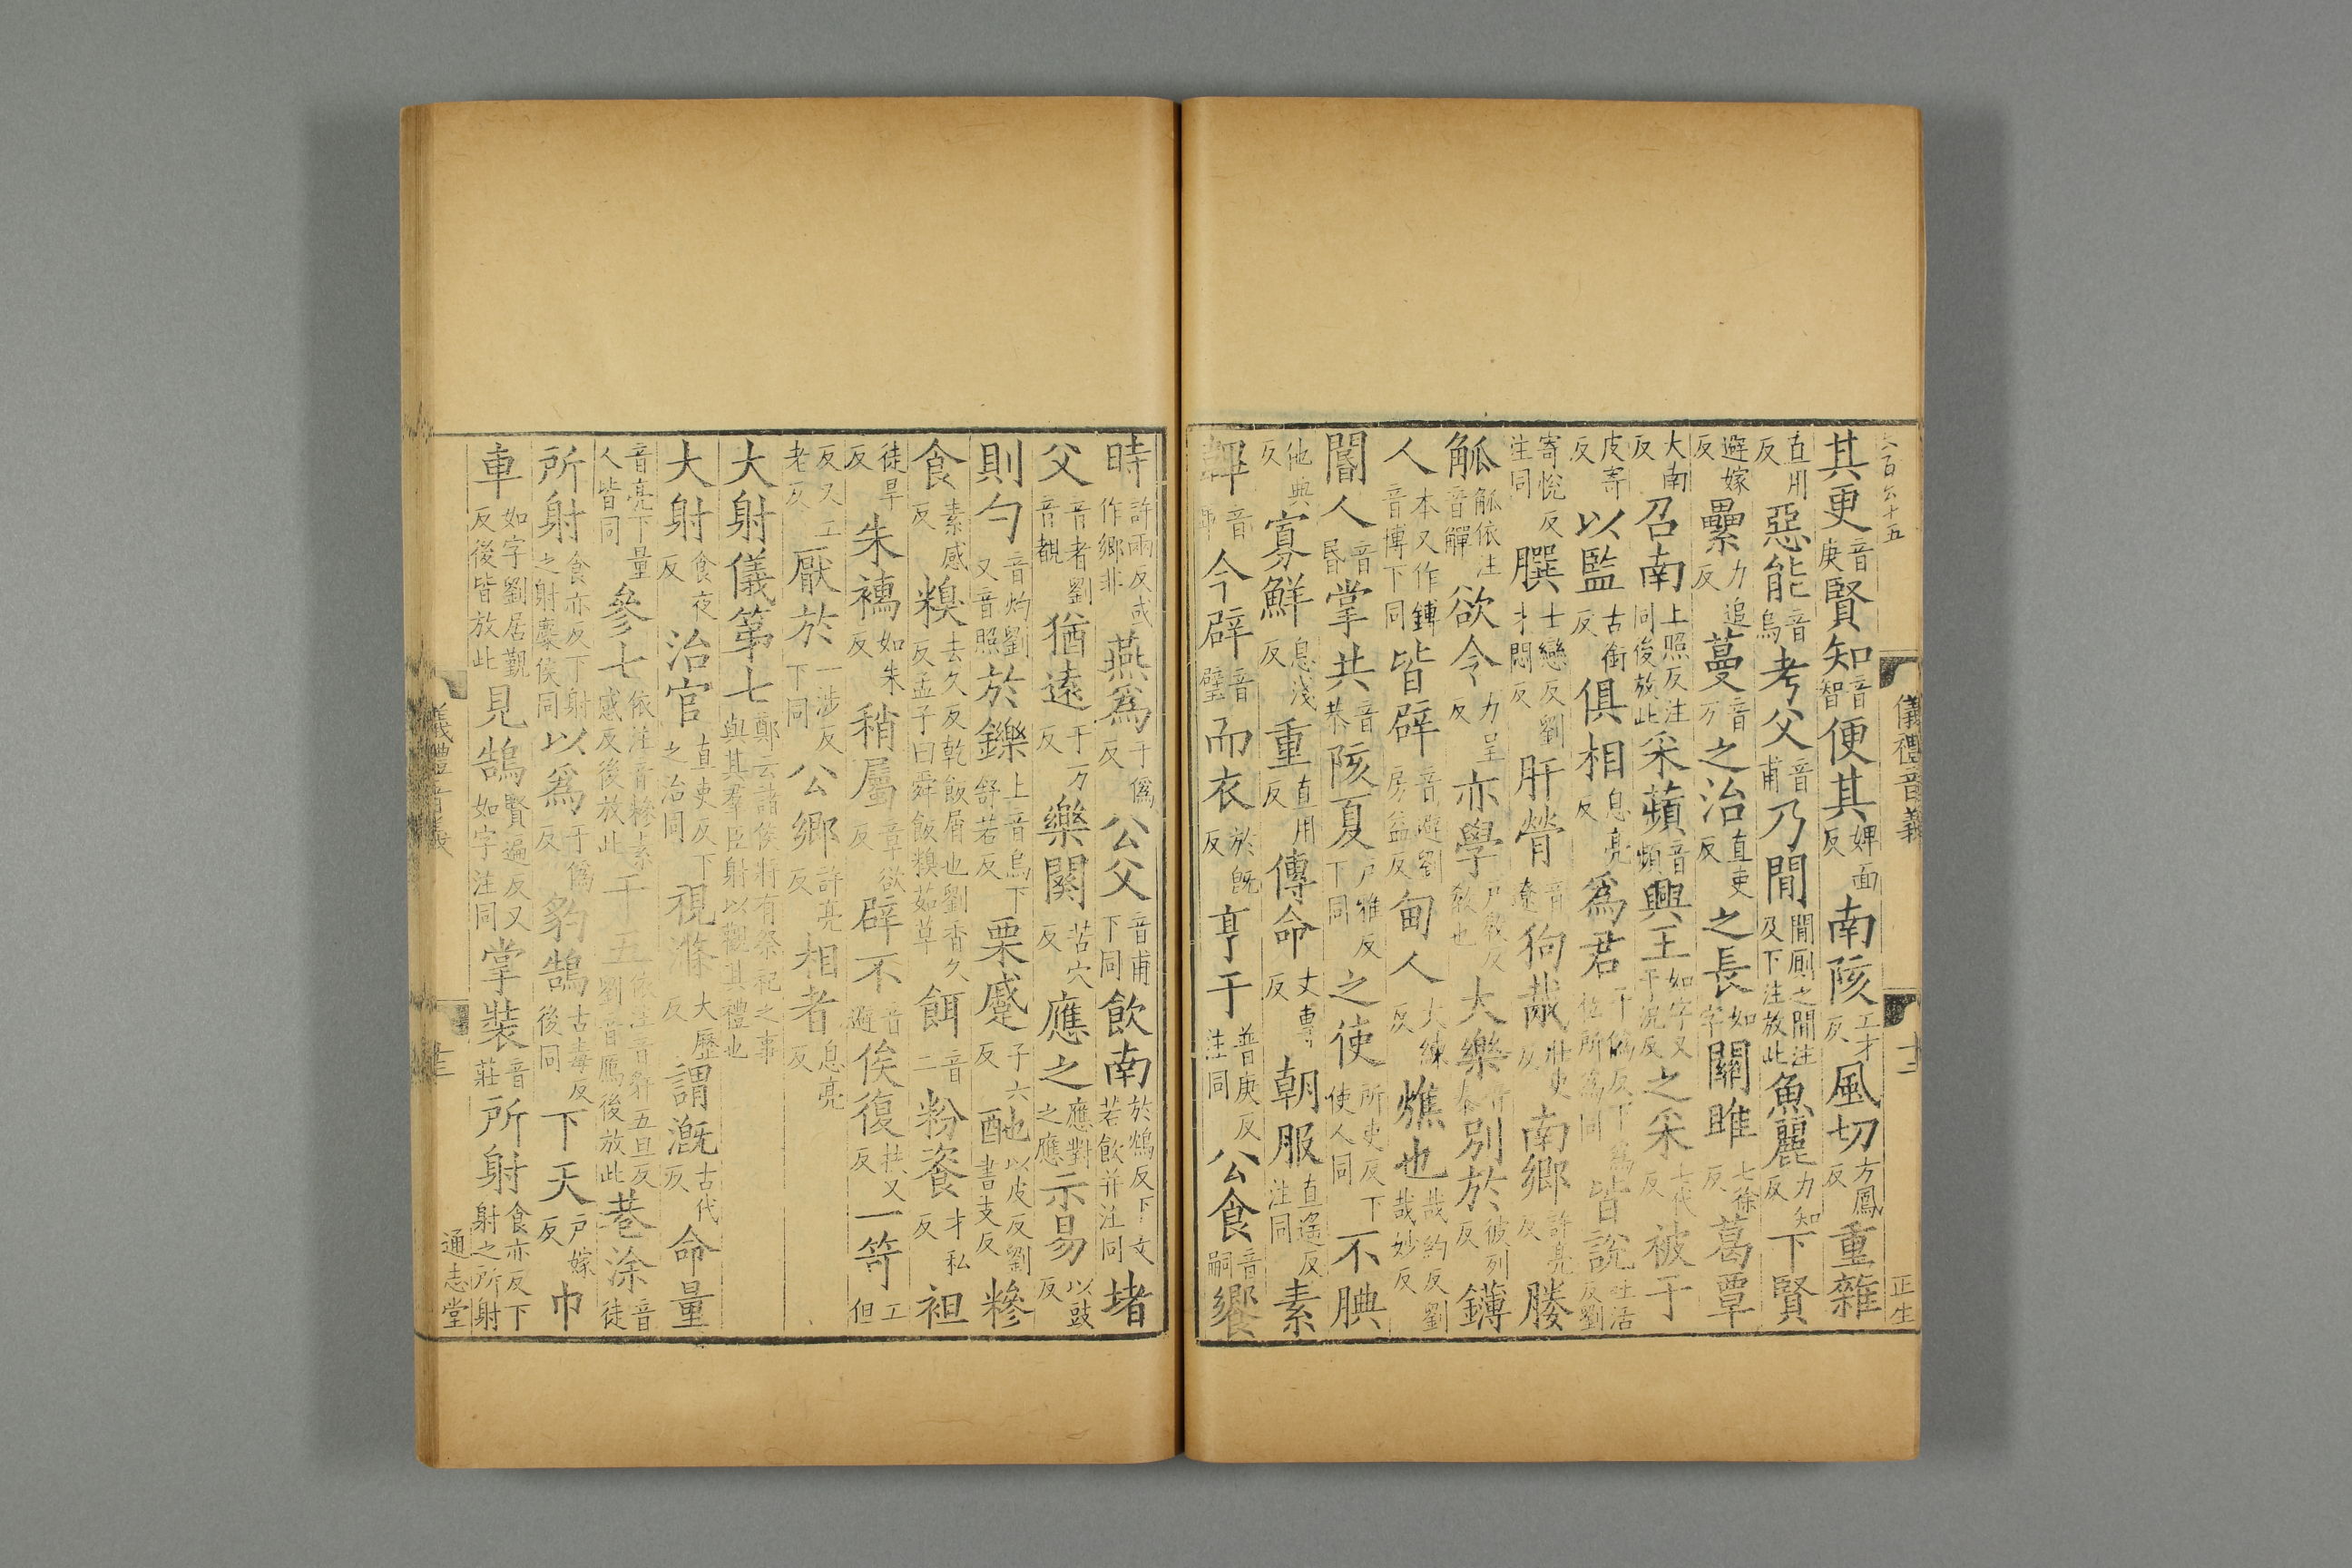 儀禮音義
十二
正生
其更音庚賢知音智便其婢面反南陔工才反風切方鳳反重雜
直用反惡能音烏考父音甫乃閒閒厠之閒注及下注放此魚麗力知反下賢
遐嫁反纍力追反蔓音万之治直吏反之長如字關雎七徐反葛覃
大南反召南上照反注同後放此采蘋音頻興王如字又于況反之采七代反被于
皮寄反以監古銜反俱相息亮反爲君于僞反下爲位所爲同皆說吐活反劉
寄悅反注同膞士戀反劉才悶反肝膋音遼狗胾壯吏反南鄉許亮反媵
觚觚依注音觶欲令力呈反亦學戶敎反敎也大樂音泰別於彼列反鑮
人本又作鎛音博下同皆辟音避劉房益反甸人大練反燋也哉約反劉哉妙反
閽人音昏掌共音恭陔夏戶雅反下同之使所吏反下使人同不腆
他典反寡鮮息淺反重直用反傳命丈專反朝服直遙反注同素
韠音畢今辟音璧而衣於旣反亨于普庚反注同公食音嗣饗
時許兩反或作鄉非燕爲于僞反公父音甫下同飲南於鴆反下文若飲并注同堵
父音者劉音覩猶遠于万反樂闋苦穴反應之應對之應示易以豉反
則勺音灼劉又音照於鑠上音烏下舒若反栗蹙子六反酏以皮反劉書支反糝
食素感反糗去久反乾飯屑也劉香久反孟子曰舜飯糗茹草餌音二粉餈才私反袒
徒旱反朱襦如朱反稍屬章欲反辟不音避俟復扶又反一笴工但
反又工老反厭於一涉反下同公鄉許亮反相者息亮反
大射儀第七鄭云諸侯將有祭祀之事與其羣臣射以觀其禮也
大射食夜反治官直吏反下之治同視滌大歷反謂漑古代反命量
音亮下量人皆同參七依注音糝素感反後放此干五依注音豻五旦反劉音鴈後放此巷涂音徒
所射食亦反下射之射麋侯同以爲于僞反豹鵠古毒反後同下天戶嫁反巾
車如字劉居覲反後皆放此見鵠賢遍反又如字注同掌裝音莊所射食亦反下射之所射
儀禮音義
通志堂